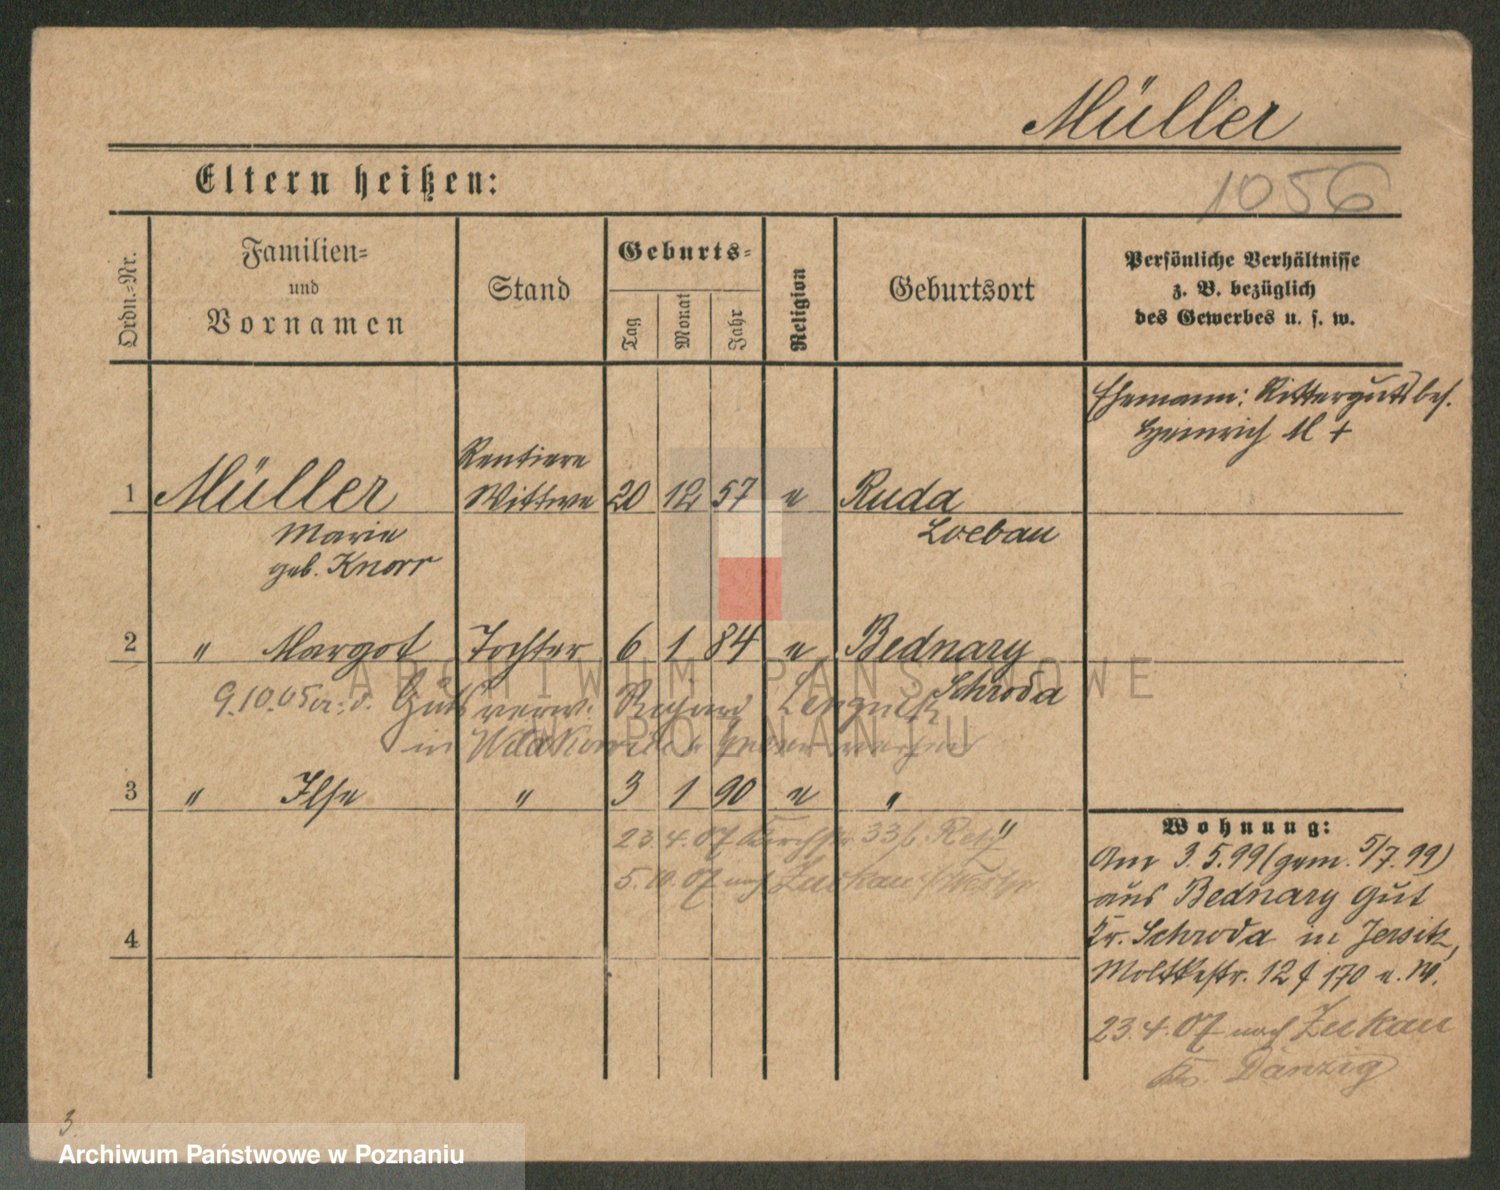 Müller
Eltern heißen:
1056
Ordn.-Nr.
Familien-
und
Vornamen
Stand
Geburts-
Tag
Monat
Jahr
Religion
Geburtsort
Persönliche Verhältnisse
z. B. bezüglich
des Gewerbes u. s. w.
Ehemann: Rittergutsbes.
Heinrich M +
1 Müller Rentiere Wittwe 20 12 57 e Ruda
Marie Loebau
geb. Knorr
2 " Margot Tochter 6 1 84 e Bednary
Schroda
9.10.05 Gutsverw. Richard
in
3 " Ilse " 3 1 90 e "
"
23.4.07 33
5. 07 nach Zuckau
4
Wohnung:
Am 3.5.99 (gem. 5/7.99)
aus Bednary Gut
Kr. Schroda in Jersitz,
Moltkestr. 12 170 e. W.
23.4.07 nach Zuckau
Kr. Danzig
3.
ARCHIWUM PAŃSTWOWE
W POZNANIU
Archiwum Państwowe w Poznaniu